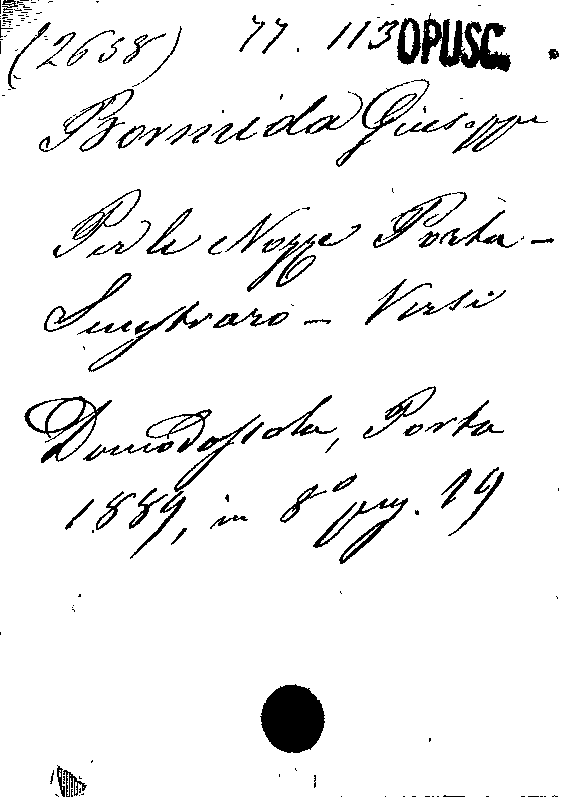 (2658) 77. 113 OPUSC.
Bormida Giuseppe
Per le Nozze Porta -
- Versi
Domodossola, Porta
1889, in 8° pag. 19